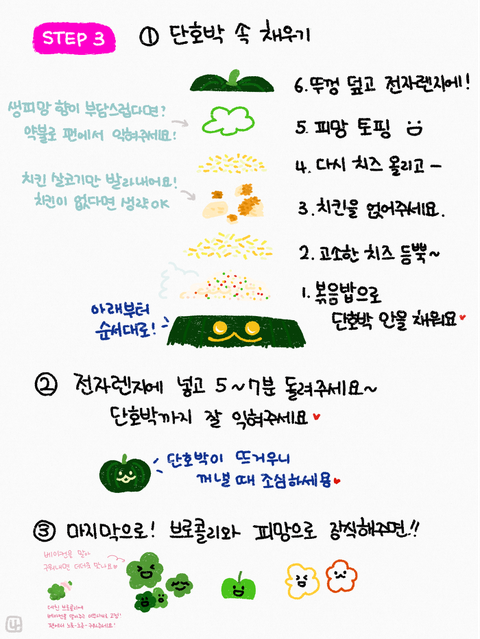 STEP 3
① 단호박 속 채우기
6. 뚜껑 덮고 전자렌지에!
생피망 향이 부담스럽다면?
약불로 팬에서 익혀주세요!
5. 피망 토핑
4. 다시 치즈 올리고 ~
치킨 살코기만 발라내어요!
치킨이 없다면 생략OK
3. 치킨을 얹어주세요.
2. 고소한 치즈 듬뿍~
1. 볶음밥으로
단호박 안을 채워요♥
아래부터
순서대로!
② 전자렌지에 넣고 5~7분 돌려주세요~
단호박까지 잘 익혀주세요♥
단호박이 뜨거우니
꺼낼 때 조심하세용♥
③ 마지막으로! 브로콜리와 피망으로 장식해주면!!
베이컨을 말아
구워내면 더더욱 맛나요
데친 브로콜리에